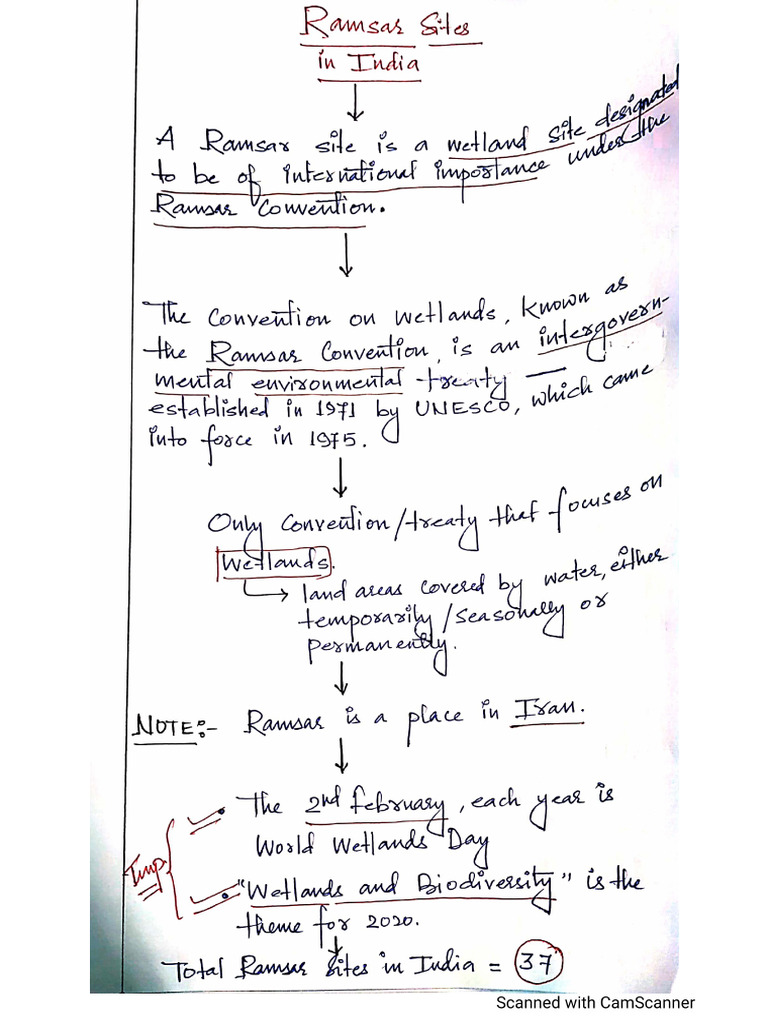 Ramsar Sites
in India
A Ramsar site is a wetland site designated
to be of international importance under the
Ramsar Convention.
The Convention on Wetlands, known as
the Ramsar Convention, is an intergovern-
mental environmental treaty
established in 1971 by UNESCO, which came
into force in 1975.
Only Convention/treaty that focuses on
Wetlands.
land areas covered by water, either
temporarily/seasonally or
permanently.
NOTE:- Ramsar is a place in Iran.
The 2nd february, each year is
World Wetlands Day
Imp.
"Wetlands and Biodiversity" is the
theme for 2020.
Total Ramsar Sites in India = 37
Scanned with CamScanner